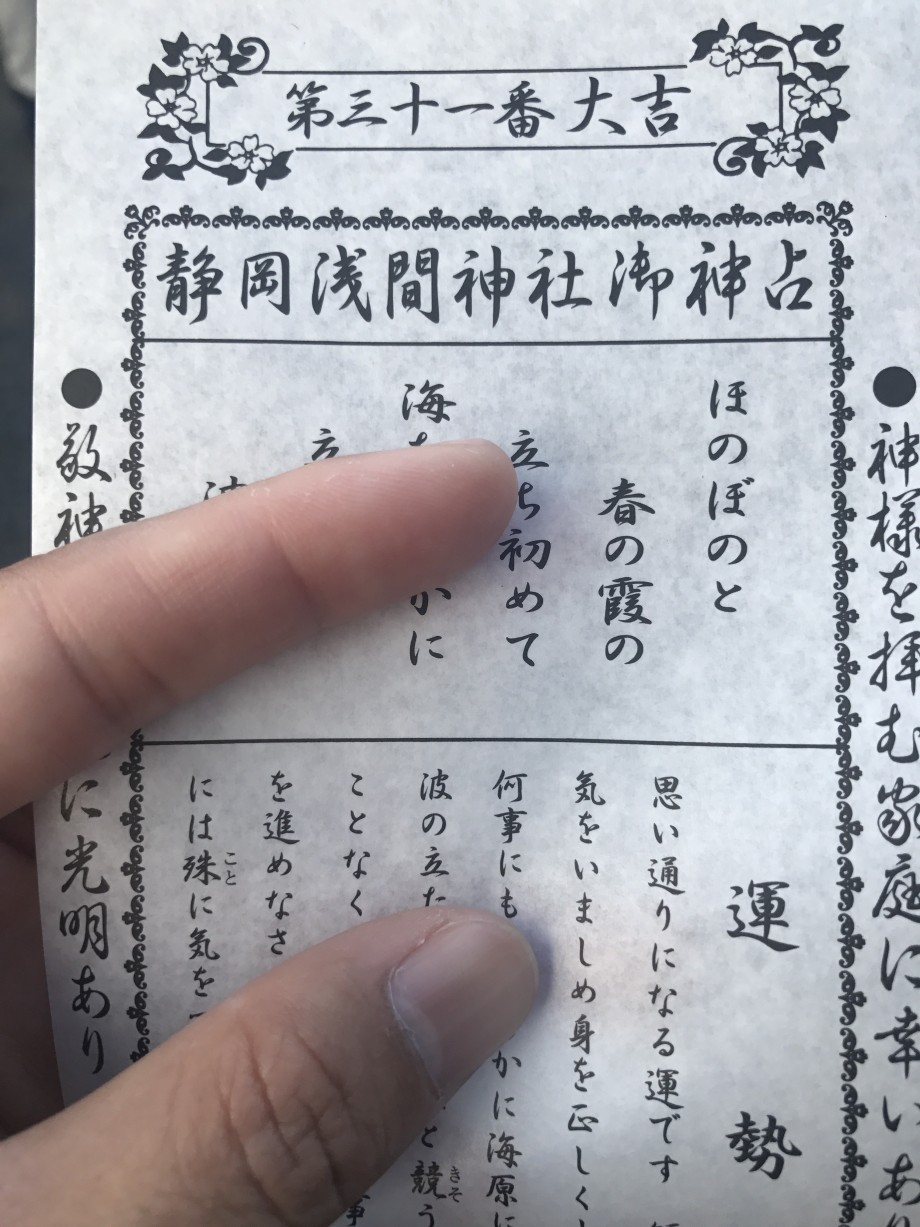 第三十一番 大吉
静岡浅間神社御神占
神様を拝む家庭に幸いあり
ほのぼのと
春の霞の
立ち初めて
海
かに
立
運勢
思い通りになる運です
気をいましめ身を正しく
何事にも
かに海原に
波の立た
と競う
きそ
ことなく
事
を進めなさ
には殊に気を
こと
敬神
に光明あり